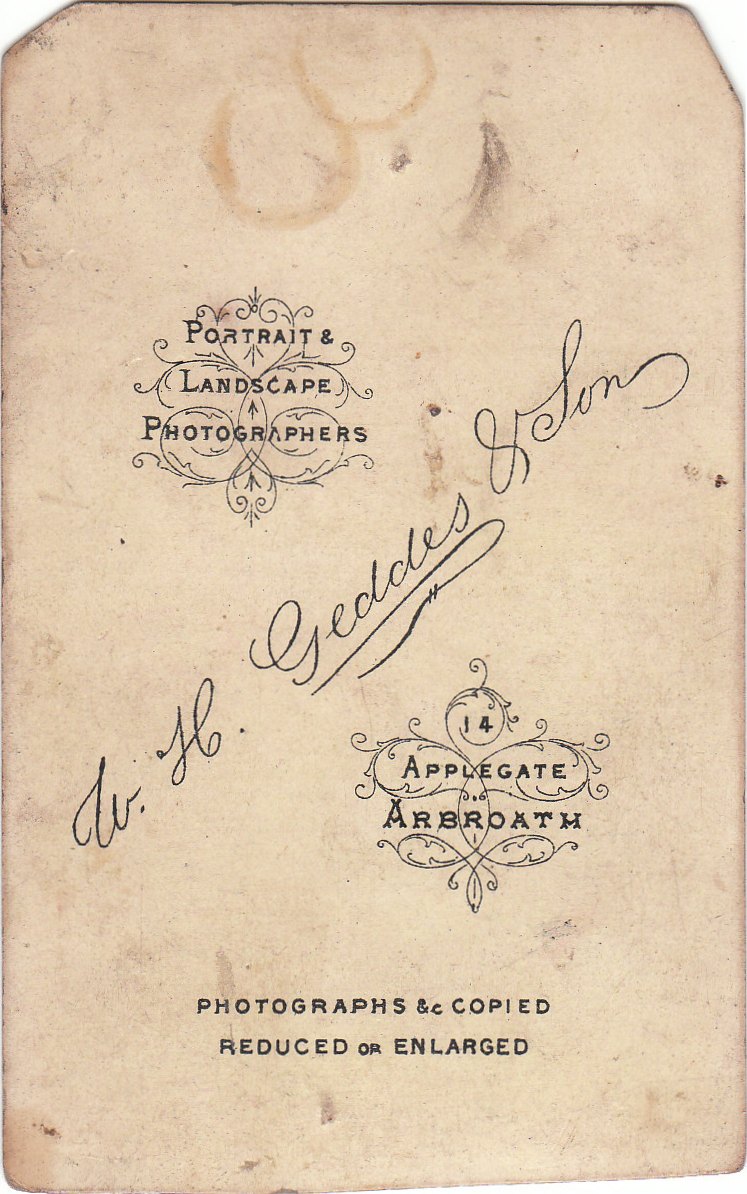 PORTRAIT &
LANDSCAPE
PHOTOGRAPHERS
W. H. Geddes & Son
14
APPLEGATE
ARBROATH
PHOTOGRAPHS &c COPIED
REDUCED OR ENLARGED